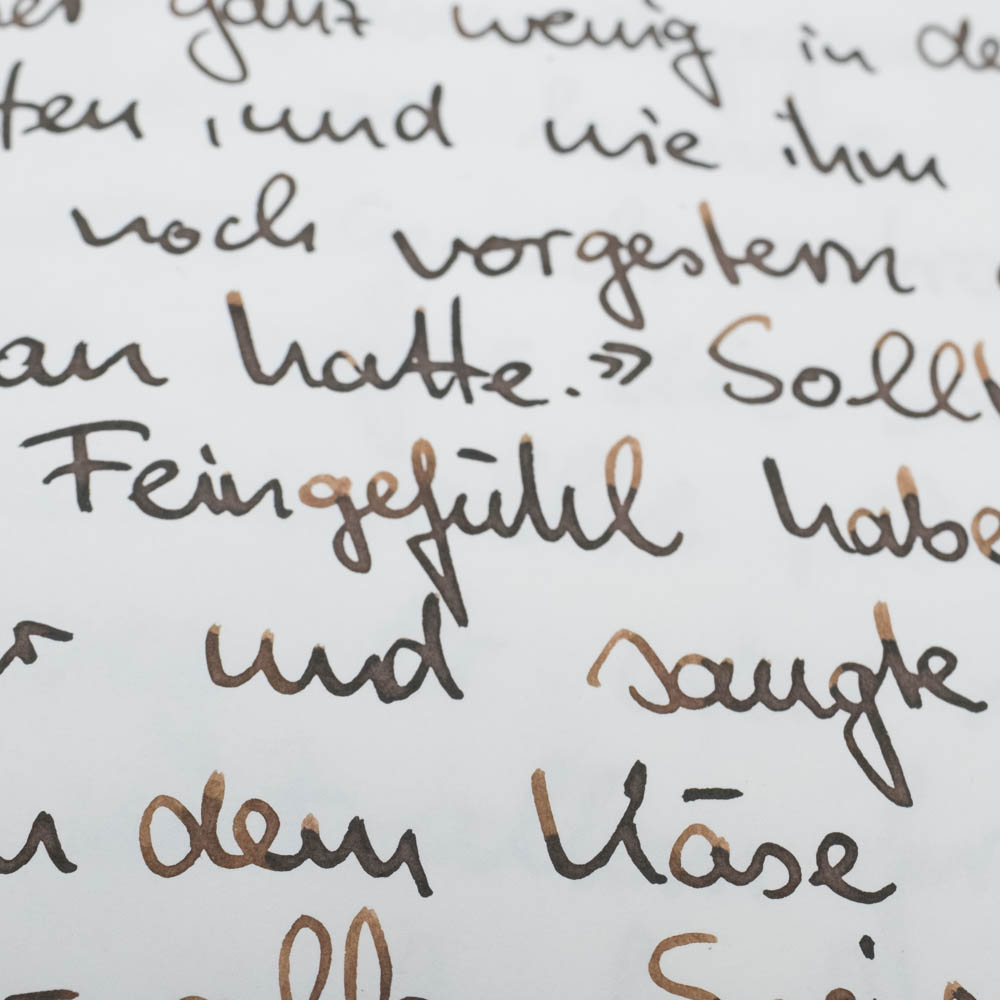 ganz wenig in de
ten, und wie ihm
noch vorgestern
an hatte.» Soll
Feingefühl habe
r und saugte
n dem Käse